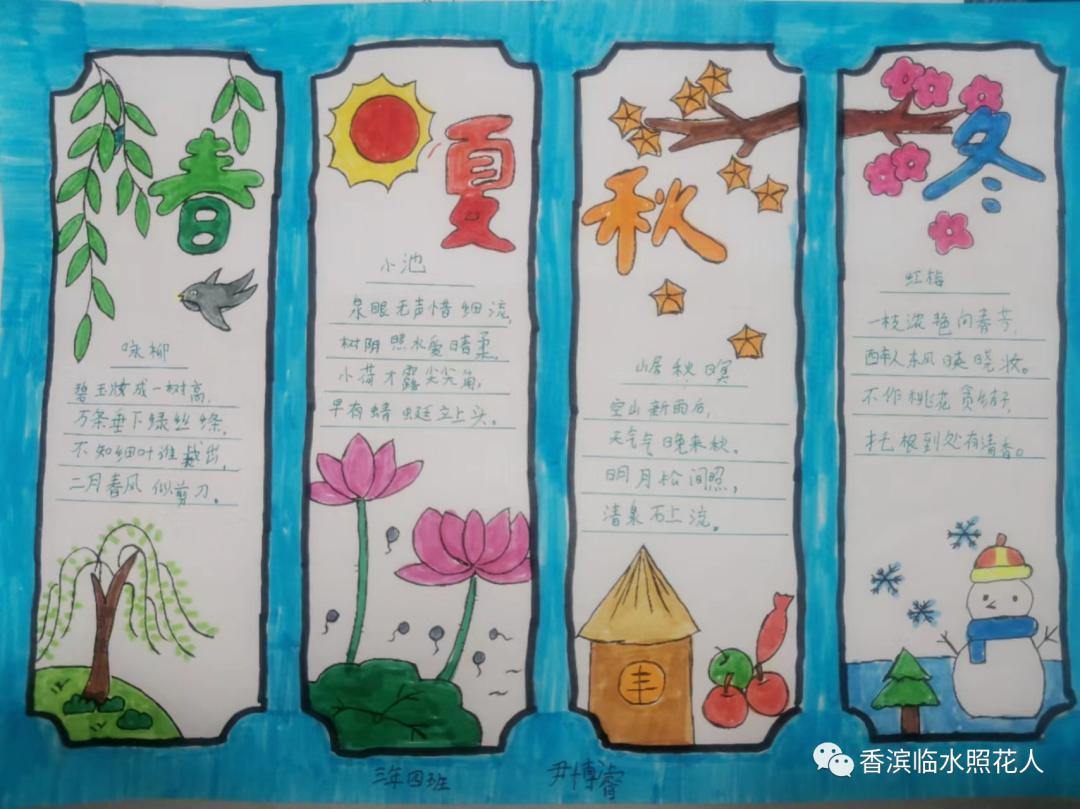 春
咏柳
碧玉妆成一树高,
万条垂下绿丝绦,
不知细叶谁裁出,
二月春风似剪刀。
夏
小池
泉眼无声惜细流,
树阴照水爱晴柔,
小荷才露尖尖角,
早有蜻蜓立上头。
秋
山居秋暝
空山新雨后,
天气晚来秋。
明月松间照,
清泉石上流。
丰
冬
红梅
一枝浓艳向春芳,
东风映晓妆。
不作桃花贪结子,
托根到处有清香。
三年四班 尹博睿
香滨临水照花人